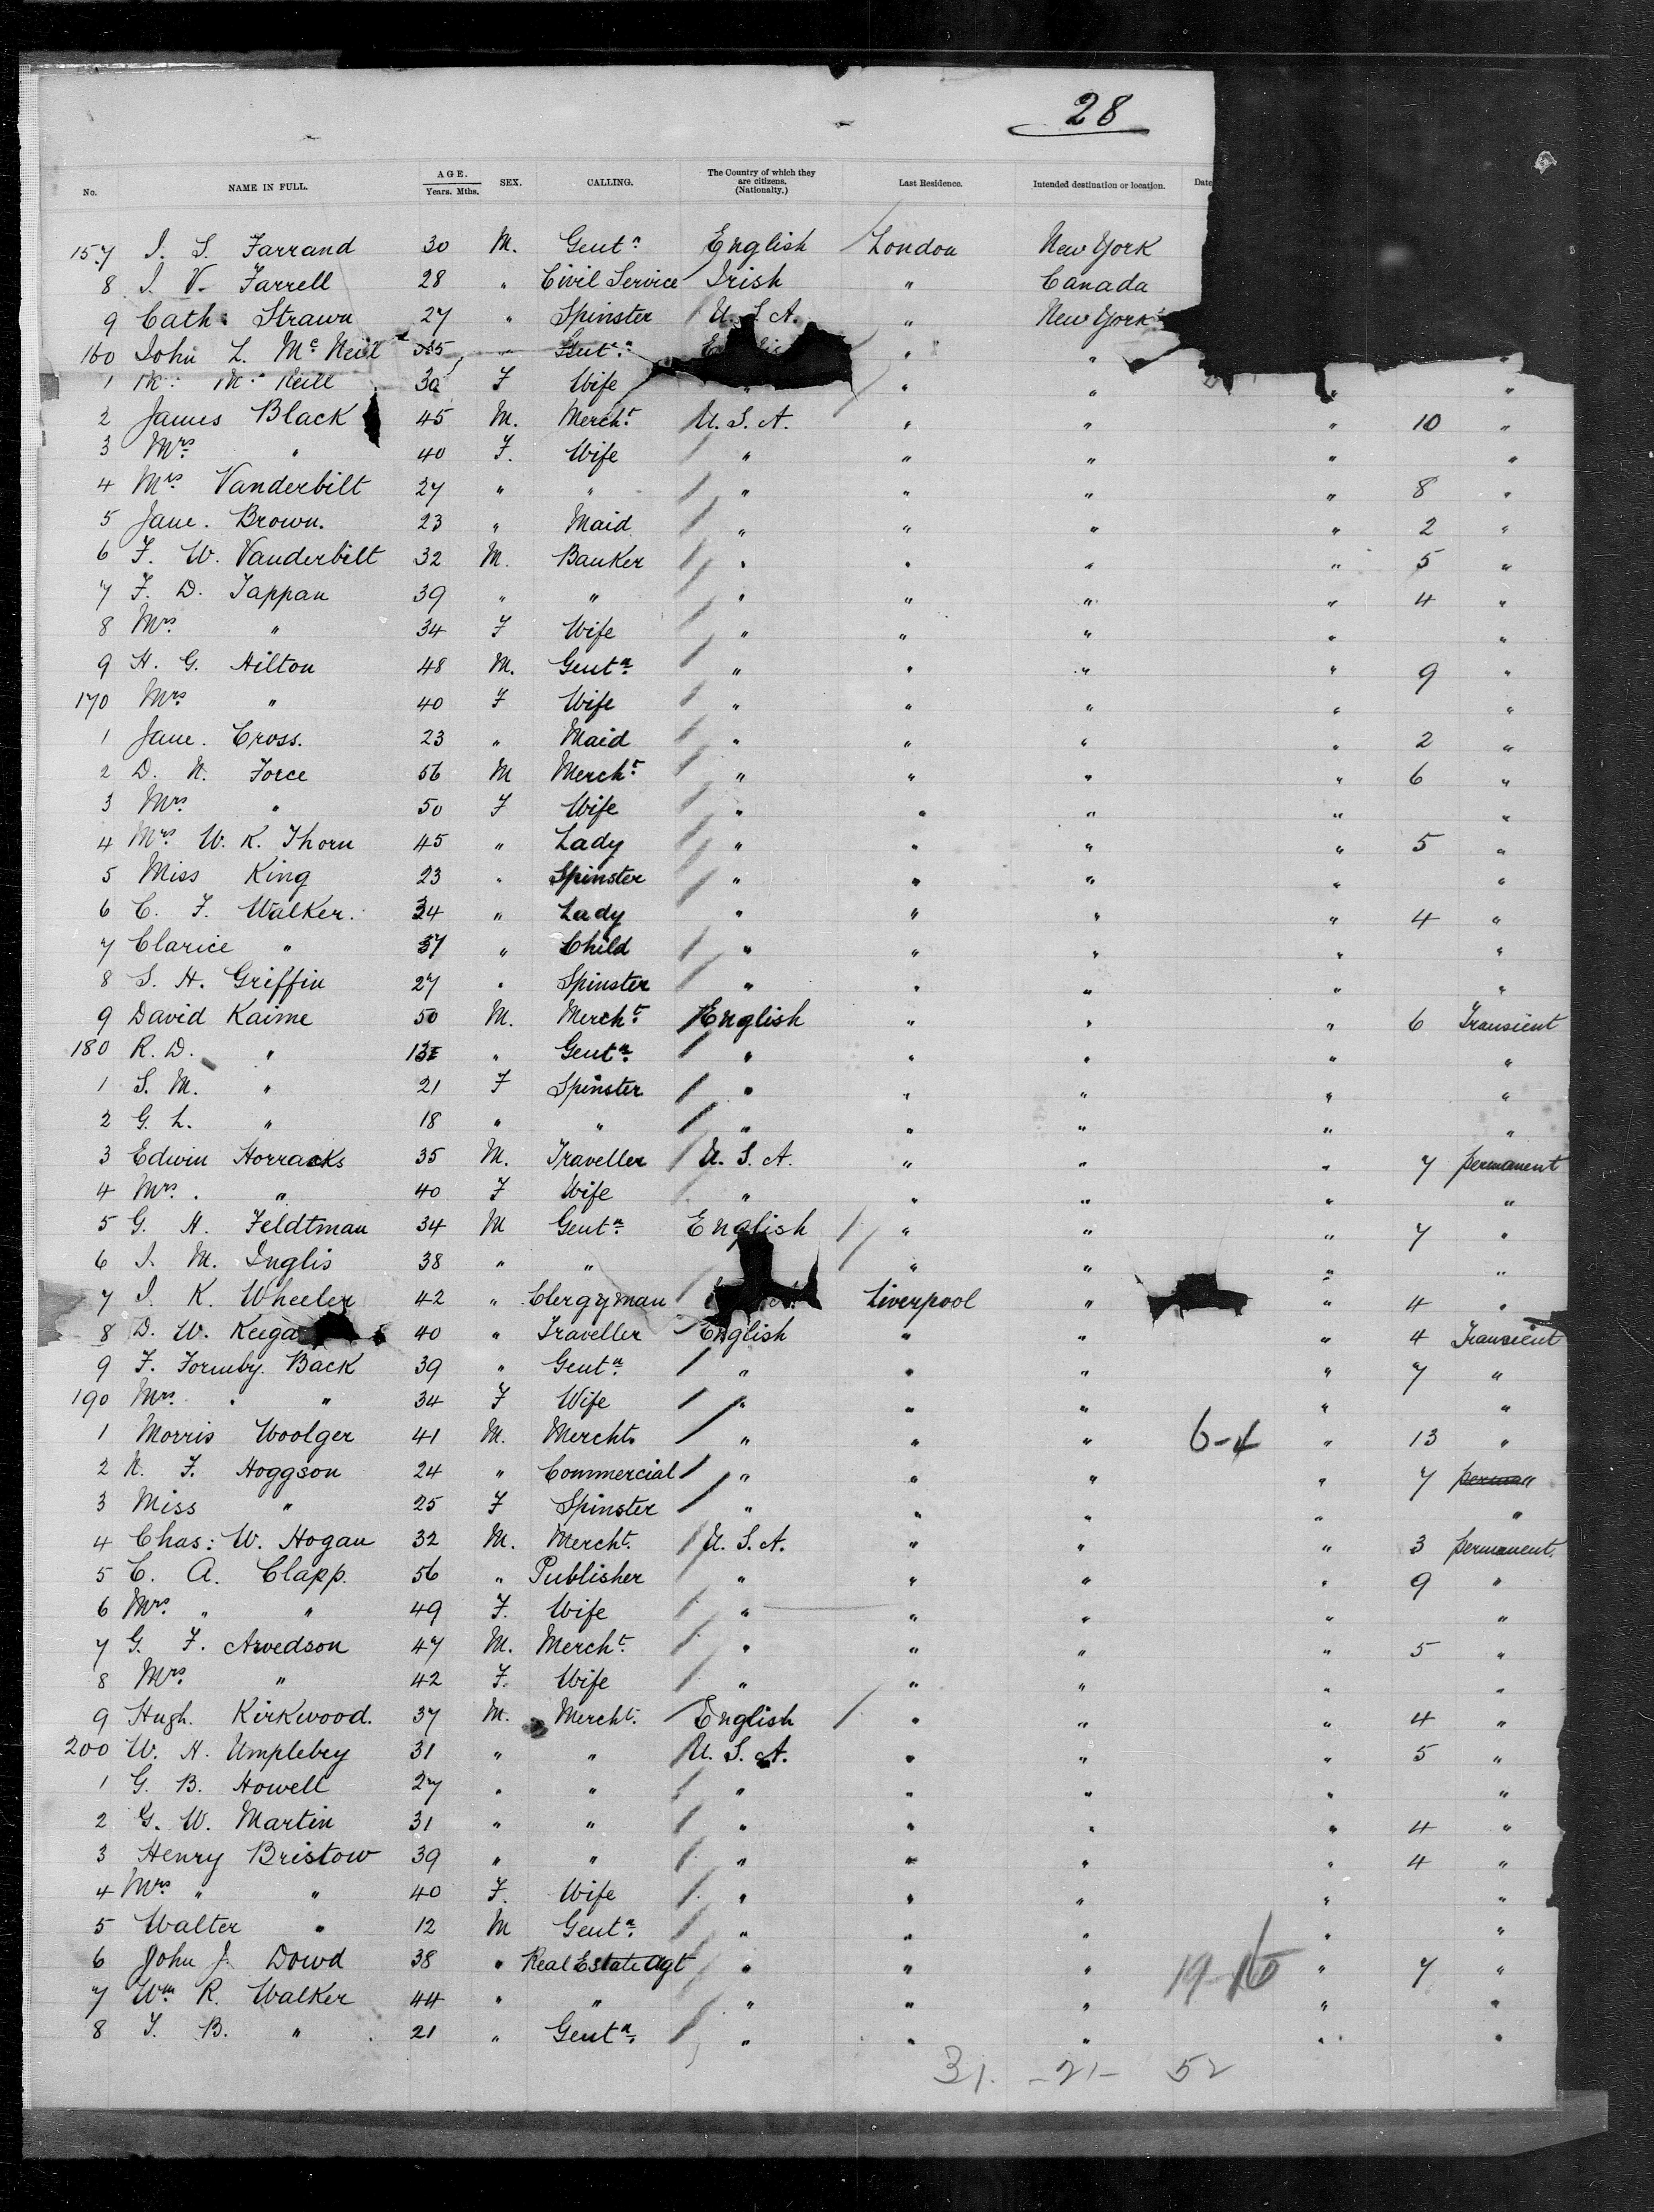 28
No. NAME IN FULL. AGE. Years. Mths. SEX. CALLING. The Country of which they are citizens. (Nationalty.) Last Residence. Intended destination or location. Date
157 J. S. Farrand 30 M. Gentn English London New York
8 J. V. Farrell 28 " Civil Service Irish " Canada
9 Cath: Strawn 27 " Spinster U. S. A. " New York
160 John L. Mc Neill 35 " Gentn " " "
1 Neill 30 F Wife " " " " "
2 James Black 45 M. Mercht U. S. A. " " " 10 "
3 Mrs " 40 F. Wife " " " " "
4 Mrs Vanderbilt 27 " " " " " " 8 "
5 Jane. Brown. 23 " Maid " " " " 2 "
6 F. W. Vanderbilt 32 M. Banker " " " " 5 "
7 F. D. Tappan 39 " " " " " " 4 "
8 Mrs " 34 F Wife " " " " "
9 H. G. Hilton 48 M. Gentn " " " " 9 "
170 Mrs " 40 F Wife " " " " "
1 Jane. Cross. 23 " Maid " " " " 2 "
2 D. N. Force 56 M Mercht " " " " 6 "
3 Mrs " 50 F Wife " " " " "
4 Mrs W. K. Thorn 45 " Lady " " " " 5 "
5 Miss King 23 " Spinster " " " " "
6 C. F. Walker. 34 " Lady " " " " 4 "
7 Clarice " " Child " " " " "
8 S. H. Griffin 27 " Spinster " " " " "
9 David Kaime 50 M. Mercht English " " " 6 Transient
180 R. D. " " Gentn " " " " "
1 S. M. " 21 F Spinster " " " " "
2 G. L. " 18 " " " " " " "
3 Edwin Horracks 35 M. Traveller U. S. A. " " " 7 permanent
4 Mrs. " 40 F Wife " " " " "
5 G. H. Feldtman 34 M Gentn English " " " 7 "
6 J. M. Inglis 38 " " " " " "
7 J. K. Wheeler 42 " Clergyman Liverpool " " 4 "
8 D. W. 40 " Traveller English " " " 4 Transient
9 F. Formby. Back 39 " Gentn " " " " 7 "
190 Mrs. " " 34 F Wife " " " " "
1 Morris Woolger 41 M. Mercht " " " 6-4 " 13 "
2 N. F. Hoggson 24 " Commercial " " " " 7 perman "
3 Miss " 25 F Spinster " " " " "
4 Chas: W. Hogan 32 M. Mercht. U. S. A. " " " 3 permanent.
5 C. A. Clapp. 56 " Publisher " " " " 9 "
6 Mrs. " " 49 F. Wife " " " " "
7 G. F. Arvedson 47 M. Mercht. " " " " 5 "
8 Mrs " 42 F. Wife " " " " "
9 Hugh. Kirkwood. 37 M. Mercht. English " " " 4 "
200 W. H. Umpleby 31 " " U. S. A. " " " 5 "
1 G. B. Howell 27 " " " " " " "
2 G. W. Martin 31 " " " " " " 4 "
3 Henry Bristow 39 " " " " " " 4 "
4 Mrs " " 40 F. Wife " " " " "
5 Walter " 12 M Gentn " " " " "
6 John J. Dowd 38 " Real Estate Agt " " " 19-16 " 7 "
7 Wm R. Walker 44 " " " " " " "
8 T. B. " 21 " Gentn. " " " " "
31. -21- 52